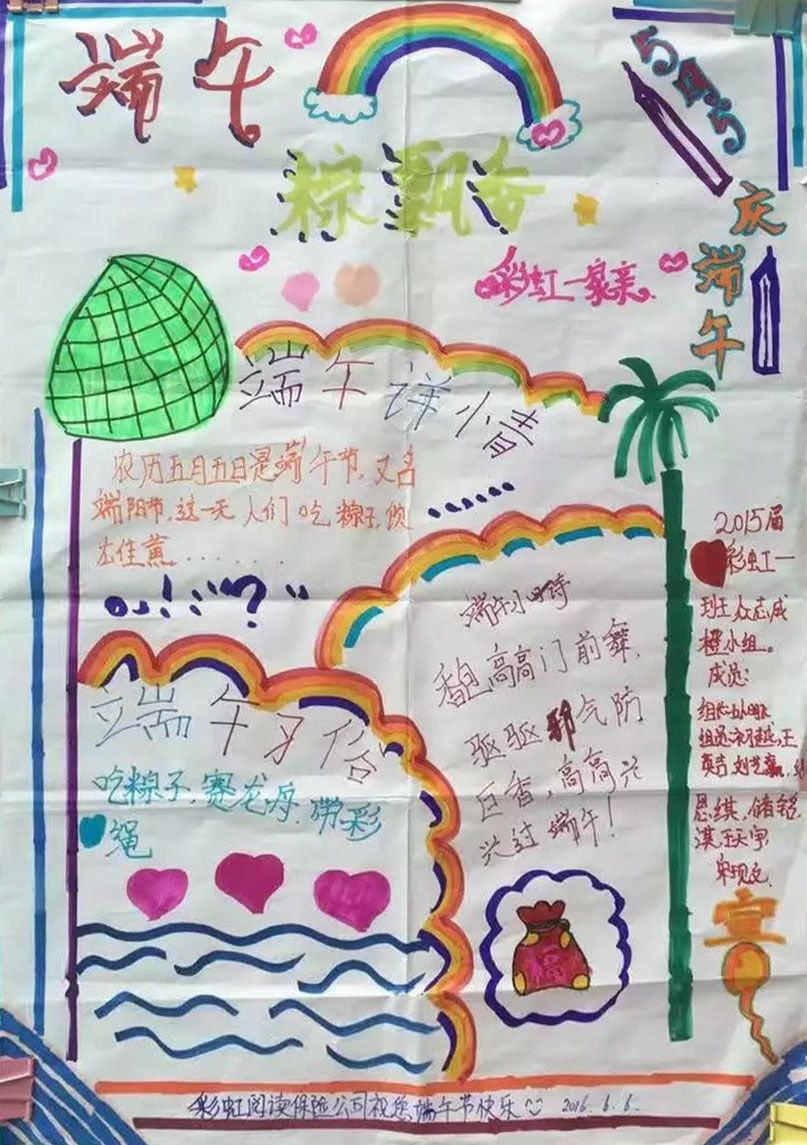 端午
粽飘香
5月5
庆端午
彩虹一家亲
端午详情
农历五月五日是端午节,又名
端阳节,这一天人们吃粽子,饮
端午小诗
香包高高门前舞,
驱驱邪气防
百香,高高兴
兴过端午!
端午习俗
吃粽子,赛龙舟,带彩
绳
福
2015届
彩虹一
班众志成
橙小组。
成员:
宣
彩虹阅读保险公司祝您端午节快乐 2016.6.6.